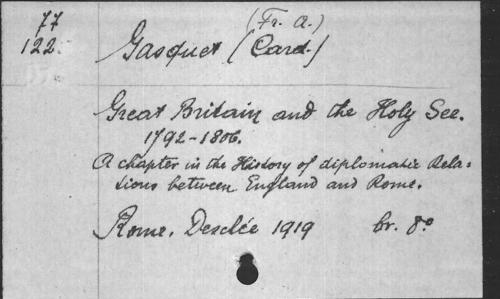 77
122.
(Fr. A.)
Gasquet (Card.)
Great Britain and the Holy See.
1792-1806.
A chapter in the History of diplomatic Rela=
tions between England and Rome.
Rome. Desclée 1919 br. 8°